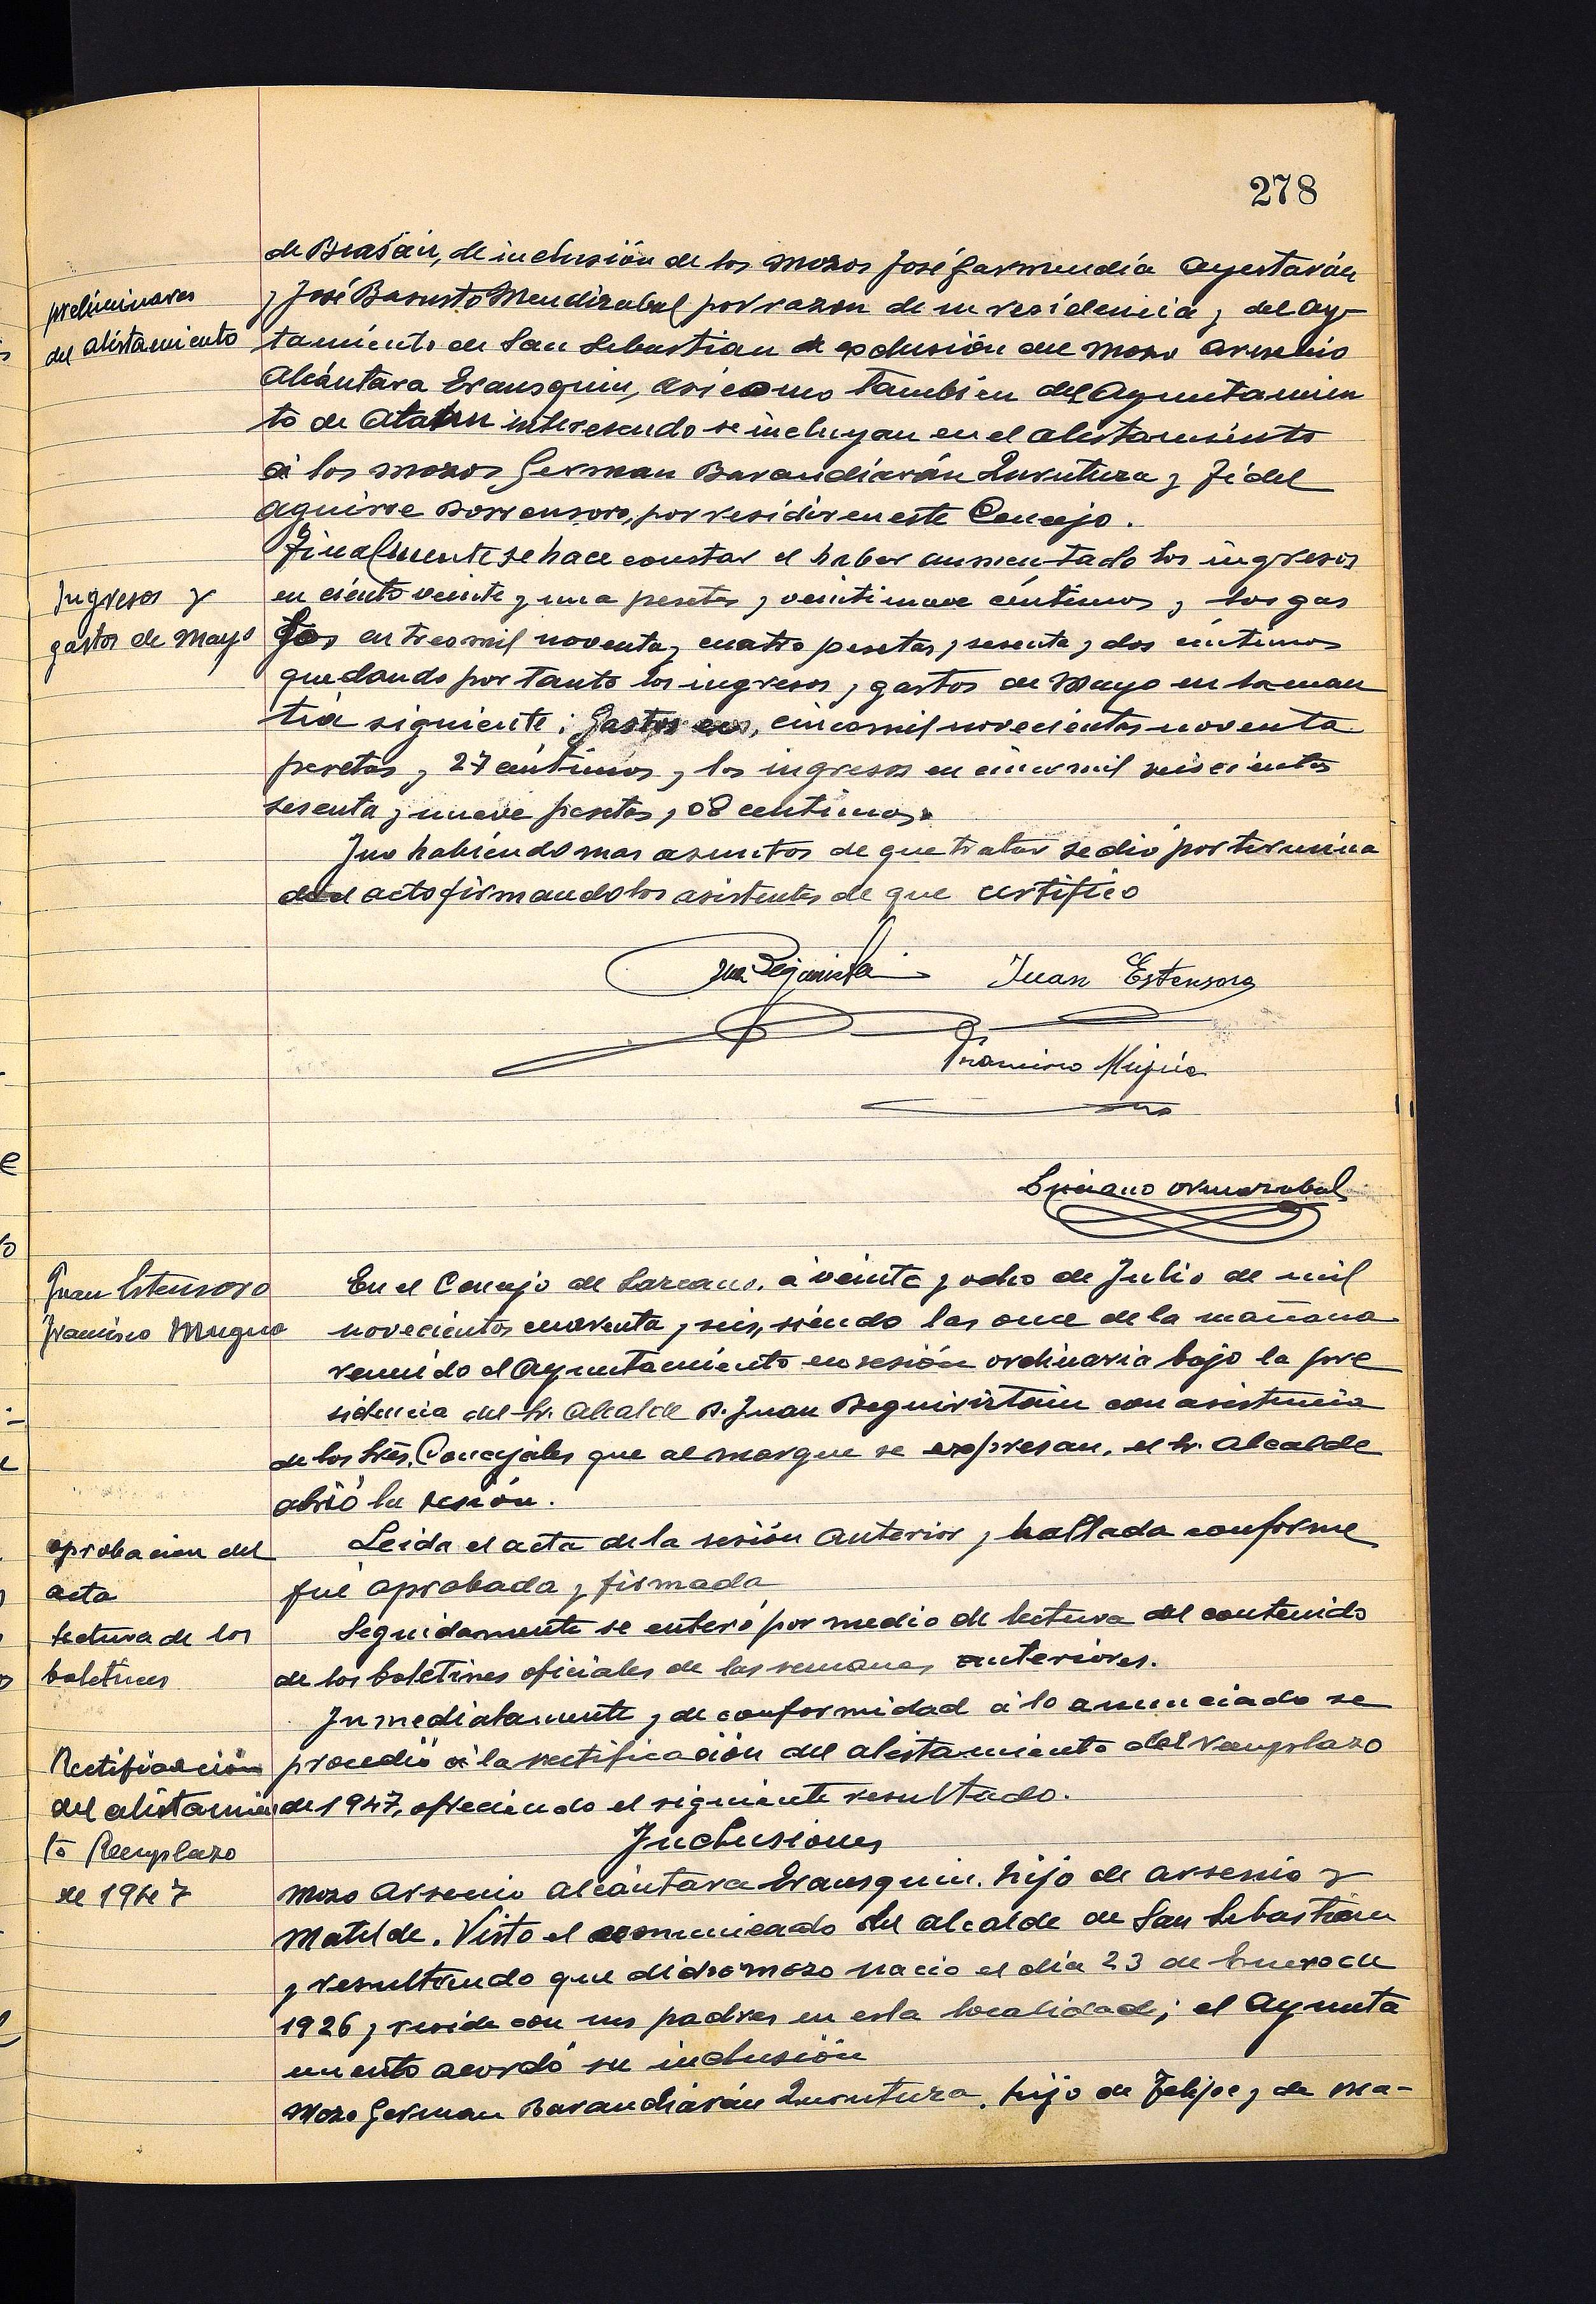 278
de Beasain, de inclusión de los mozos José Garmendia Ayestarán
preliminares
y José Basurto Mendizabal por razon de su residencia y del Ay-
del alistamiento
tamiento de San Sebastian de exclusión del mozo Arsenio
Alcántara Erausquin, asicomo tambien del Ayuntamien
to de Ataun interesando se incluyan en el alistamiento
á los mozos German Barandiarán Inxutura y Fidel
Aguirre Sorrensoro, por residir en este Concejo.
Finalmente se hace constar el haber aumentado los ingresos
Ingresos y
en ciento veinte y una pesetas y veintinueve céntimos y los gas
gastos de Mayo
tos en tres mil noventa y cuatro pesetas y sesenta y dos céntimos
quedando por tanto los ingresos y gastos de Mayo en la cuan
tia siguiente: Gastos en, cincomil novecientas noventa
pesetas y 27 céntimos y los ingresos en cincomil seiscientas
sesenta y nueve pesetas y 08 centimos.
Y no habiendo mas asuntos de que tratar se dió por termina
do el acto firmando los asistentes de que certifico
Juan Estensoro
Francisco Mujica
Luciano Ormazabal
Juan Estensoro
En el Concejo de Lazcano, á veinte y ocho de Julio de mil
Francisco Mugica
novecientos cuarenta y seis, siendo las once de la mañana
reunido el Ayuntamiento en sesión ordinaria bajo la pre
sidencia del Sr. Alcalde D. Juan Beguiristain con asistencia
de los Sres. Concejales que al margen se expresan, el Sr. Alcalde
abrió la sesión.
aprobacion del
Leida el acta de la sesión anterior y hallada conforme
acta
fué aprobada y firmada
lectura de los
Seguidamente se enteró por medio de lectura del contenido
boletines
de los boletines oficiales de las semanas anteriores.
Inmediatamente y de conformidad á lo anunciado se
Rectificación
procedió á la rectificación del alistamiento del reemplazo
del alistamien
de 1947, ofreciendo el siguiente resultado.
to Reemplazo
Inclusiones
de 1947
Mozo Arsenio Alcántara Erausquin. hijo de Arsenio y
Matilde. Visto el comunicado del alcalde de San Sebastián
y resultando que dicho mozo nacio el dia 23 de Enero de
1926 y reside con sus padres en esta localidad; el Ayunta
miento acordó su inclusión
Mozo German Barandiarán Inxutura. hijo de Felipe y de Ma-